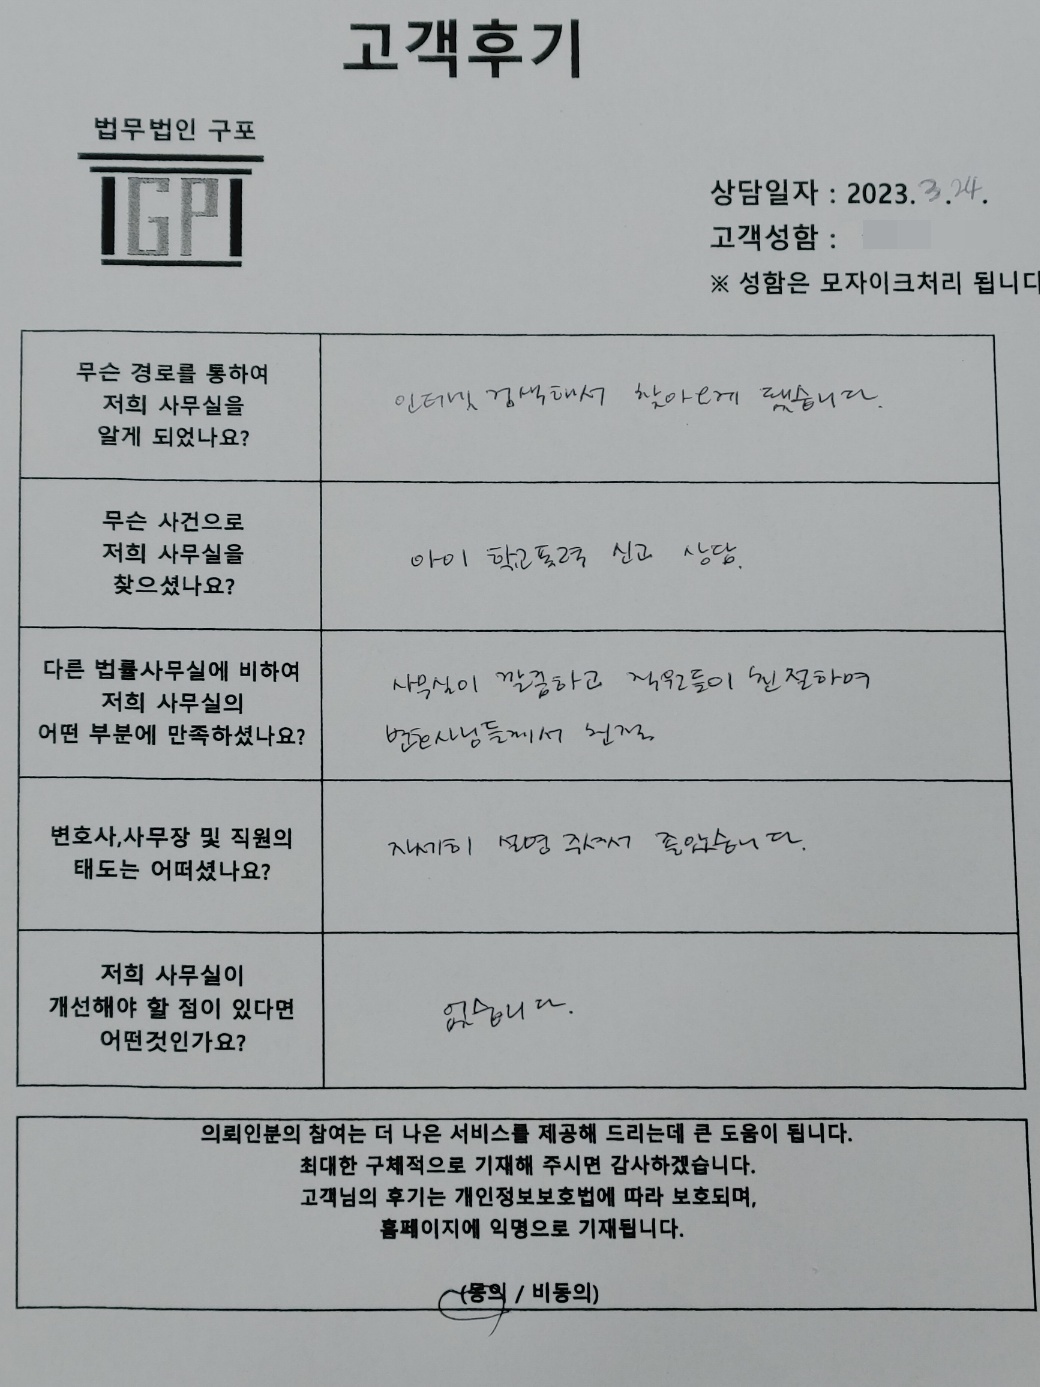 고객후기
법무법인 구포
GP
상담일자 : 2023.3.24.
고객성함 :
※ 성함은 모자이크처리 됩니다
무슨 경로를 통하여
저희 사무실을
알게 되었나요?
인터넷 검색해서 찾아오게 됐습니다.
무슨 사건으로
저희 사무실을
찾으셨나요?
아이 학교폭력 신고 상담.
다른 법률사무실에 비하여
저희 사무실의
어떤 부분에 만족하셨나요?
사무실이 깔끔하고 직원들이 친절하여
변호사님들께서 친절
변호사,사무장 및 직원의
태도는 어떠셨나요?
자세히 설명 주셔서 좋았습니다.
저희 사무실이
개선해야 할 점이 있다면
어떤것인가요?
없습니다.
의뢰인분의 참여는 더 나은 서비스를 제공해 드리는데 큰 도움이 됩니다.
최대한 구체적으로 기재해 주시면 감사하겠습니다.
고객님의 후기는 개인정보보호법에 따라 보호되며,
홈페이지에 익명으로 기재됩니다.
(동의 / 비동의)